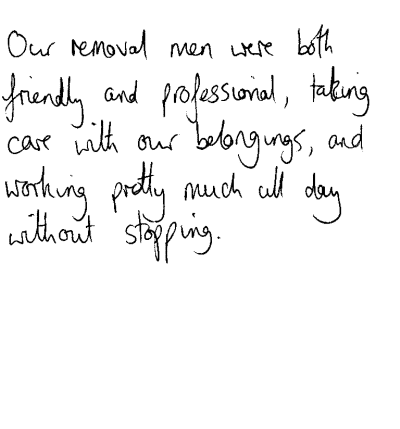 Our removal men were both
friendly and professional, taking
care with our belongings, and
working pretty much all day
without stopping.